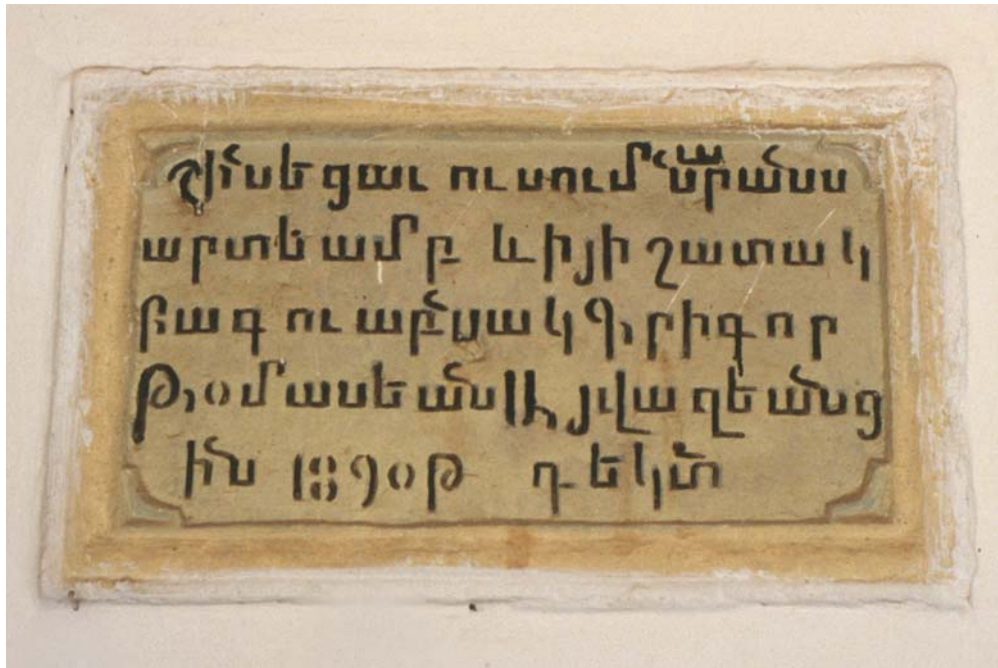 շինեցաւ ուսումնարանս
արտեամբ և ի յիշատակ
բագուաբնակ Գրիգոր
Թօմասեան Այվազեանց
ին 1890թ դեկտ